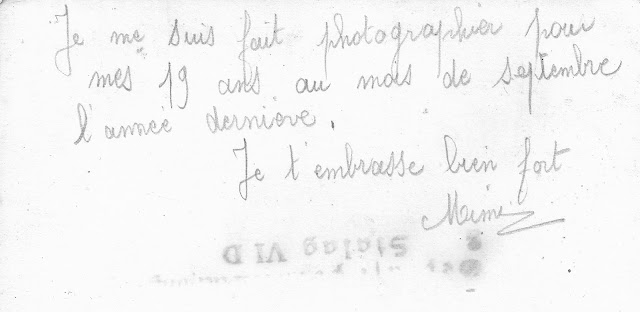 Je me suis fait photographier pour
mes 19 ans au mois de septembre
l'année dernière.
Je t'embrasse bien fort
Mimi
Stalag VI D